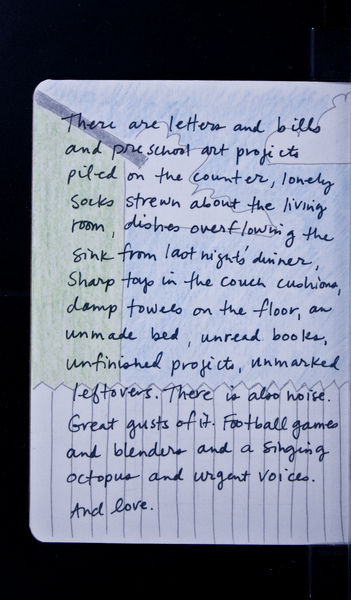 There are letters and bills
and preschool art projects
piled on the counter, lonely
socks strewn about the living
room, dishes overflowing the
sink from last nights' dinner,
Sharp toys in the couch cushions,
damp towels on the floor, an
unmade bed, unread books,
unfinished projects, unmarked
leftovers. There is also noise.
Great gusts of it. Football games
and blenders and a singing
octopus and urgent voices.
And love.